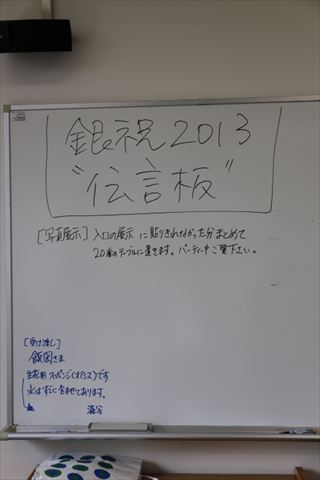 銀祝2013
"伝言板"
[写真展示] 入口の展示に貼りきれなかった分まとめて
20番のテーブルに置きます。パーティー中ご覧下さい。
[受け渡し]
飯岡さま
生花用スポンジ(オアシス)です
水はすでに含ませてあります。
澁谷